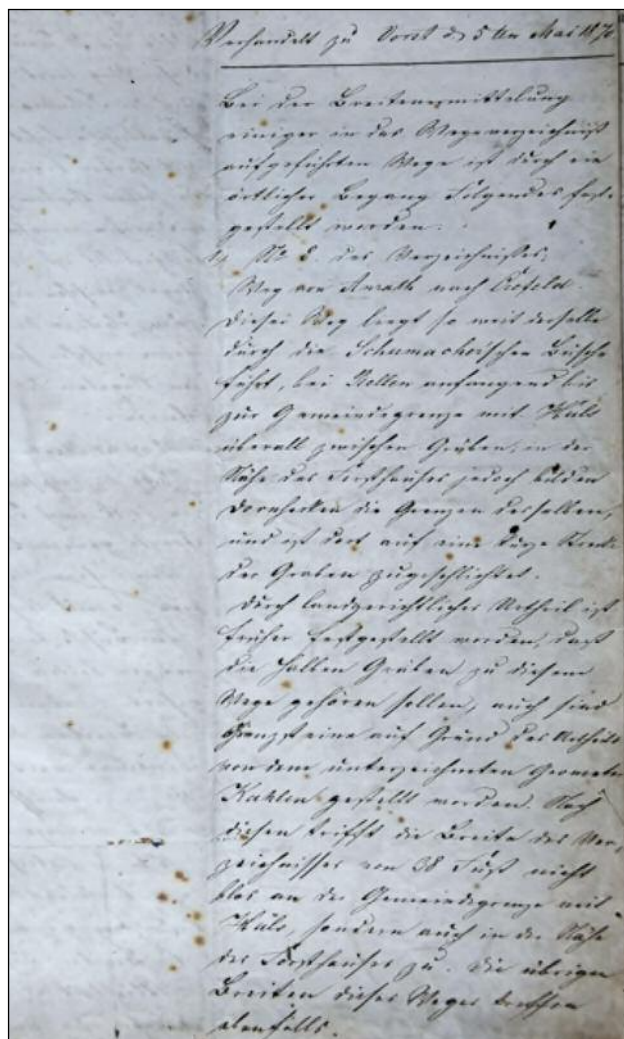 Verhandelt zu Vorst d. 5ten Mai 1870
Bei der Breitenermittelung
einiger in das Wegeverzeichniß
aufgeführten Wege ist durch ein
örtlicher Begang Folgendes fest-
gestellt worden:
1, No 8 des Verzeichnisses,
Weg von Anrath nach Crefeld.
Dieser Weg liegt so weit derselbe
durch die Schumacherschen Büsche
führt, bei Nollen anfangend bis
zur Gemeindegrenze mit Hüls
überall zwischen Gräben, in der
Nähe des Forsthauses jedoch bilden
Dornhecken die Grenzen desselben,
und ist dort auf eine kurze Strecke
der Graben zugeschlichtet.
Durch landgerichtliches Urtheil ist
früher festgestellt worden, daß
die halben Gräben zu diesem
Wege gehören sollen, auch sind
Grenzsteine auf Grund des Urtheils
von dem unterzeichneten Geometer
Kahlen gestellt worden. Nach
diesen trifft die Breite des Ver-
zeichnisses von 38 Fuß nicht
blos an der Gemeindegrenze mit
Hüls, sondern auch in der Nähe
des Forsthauses zu. Die übrigen
Breiten dieses Weges treffen
ebenfalls.